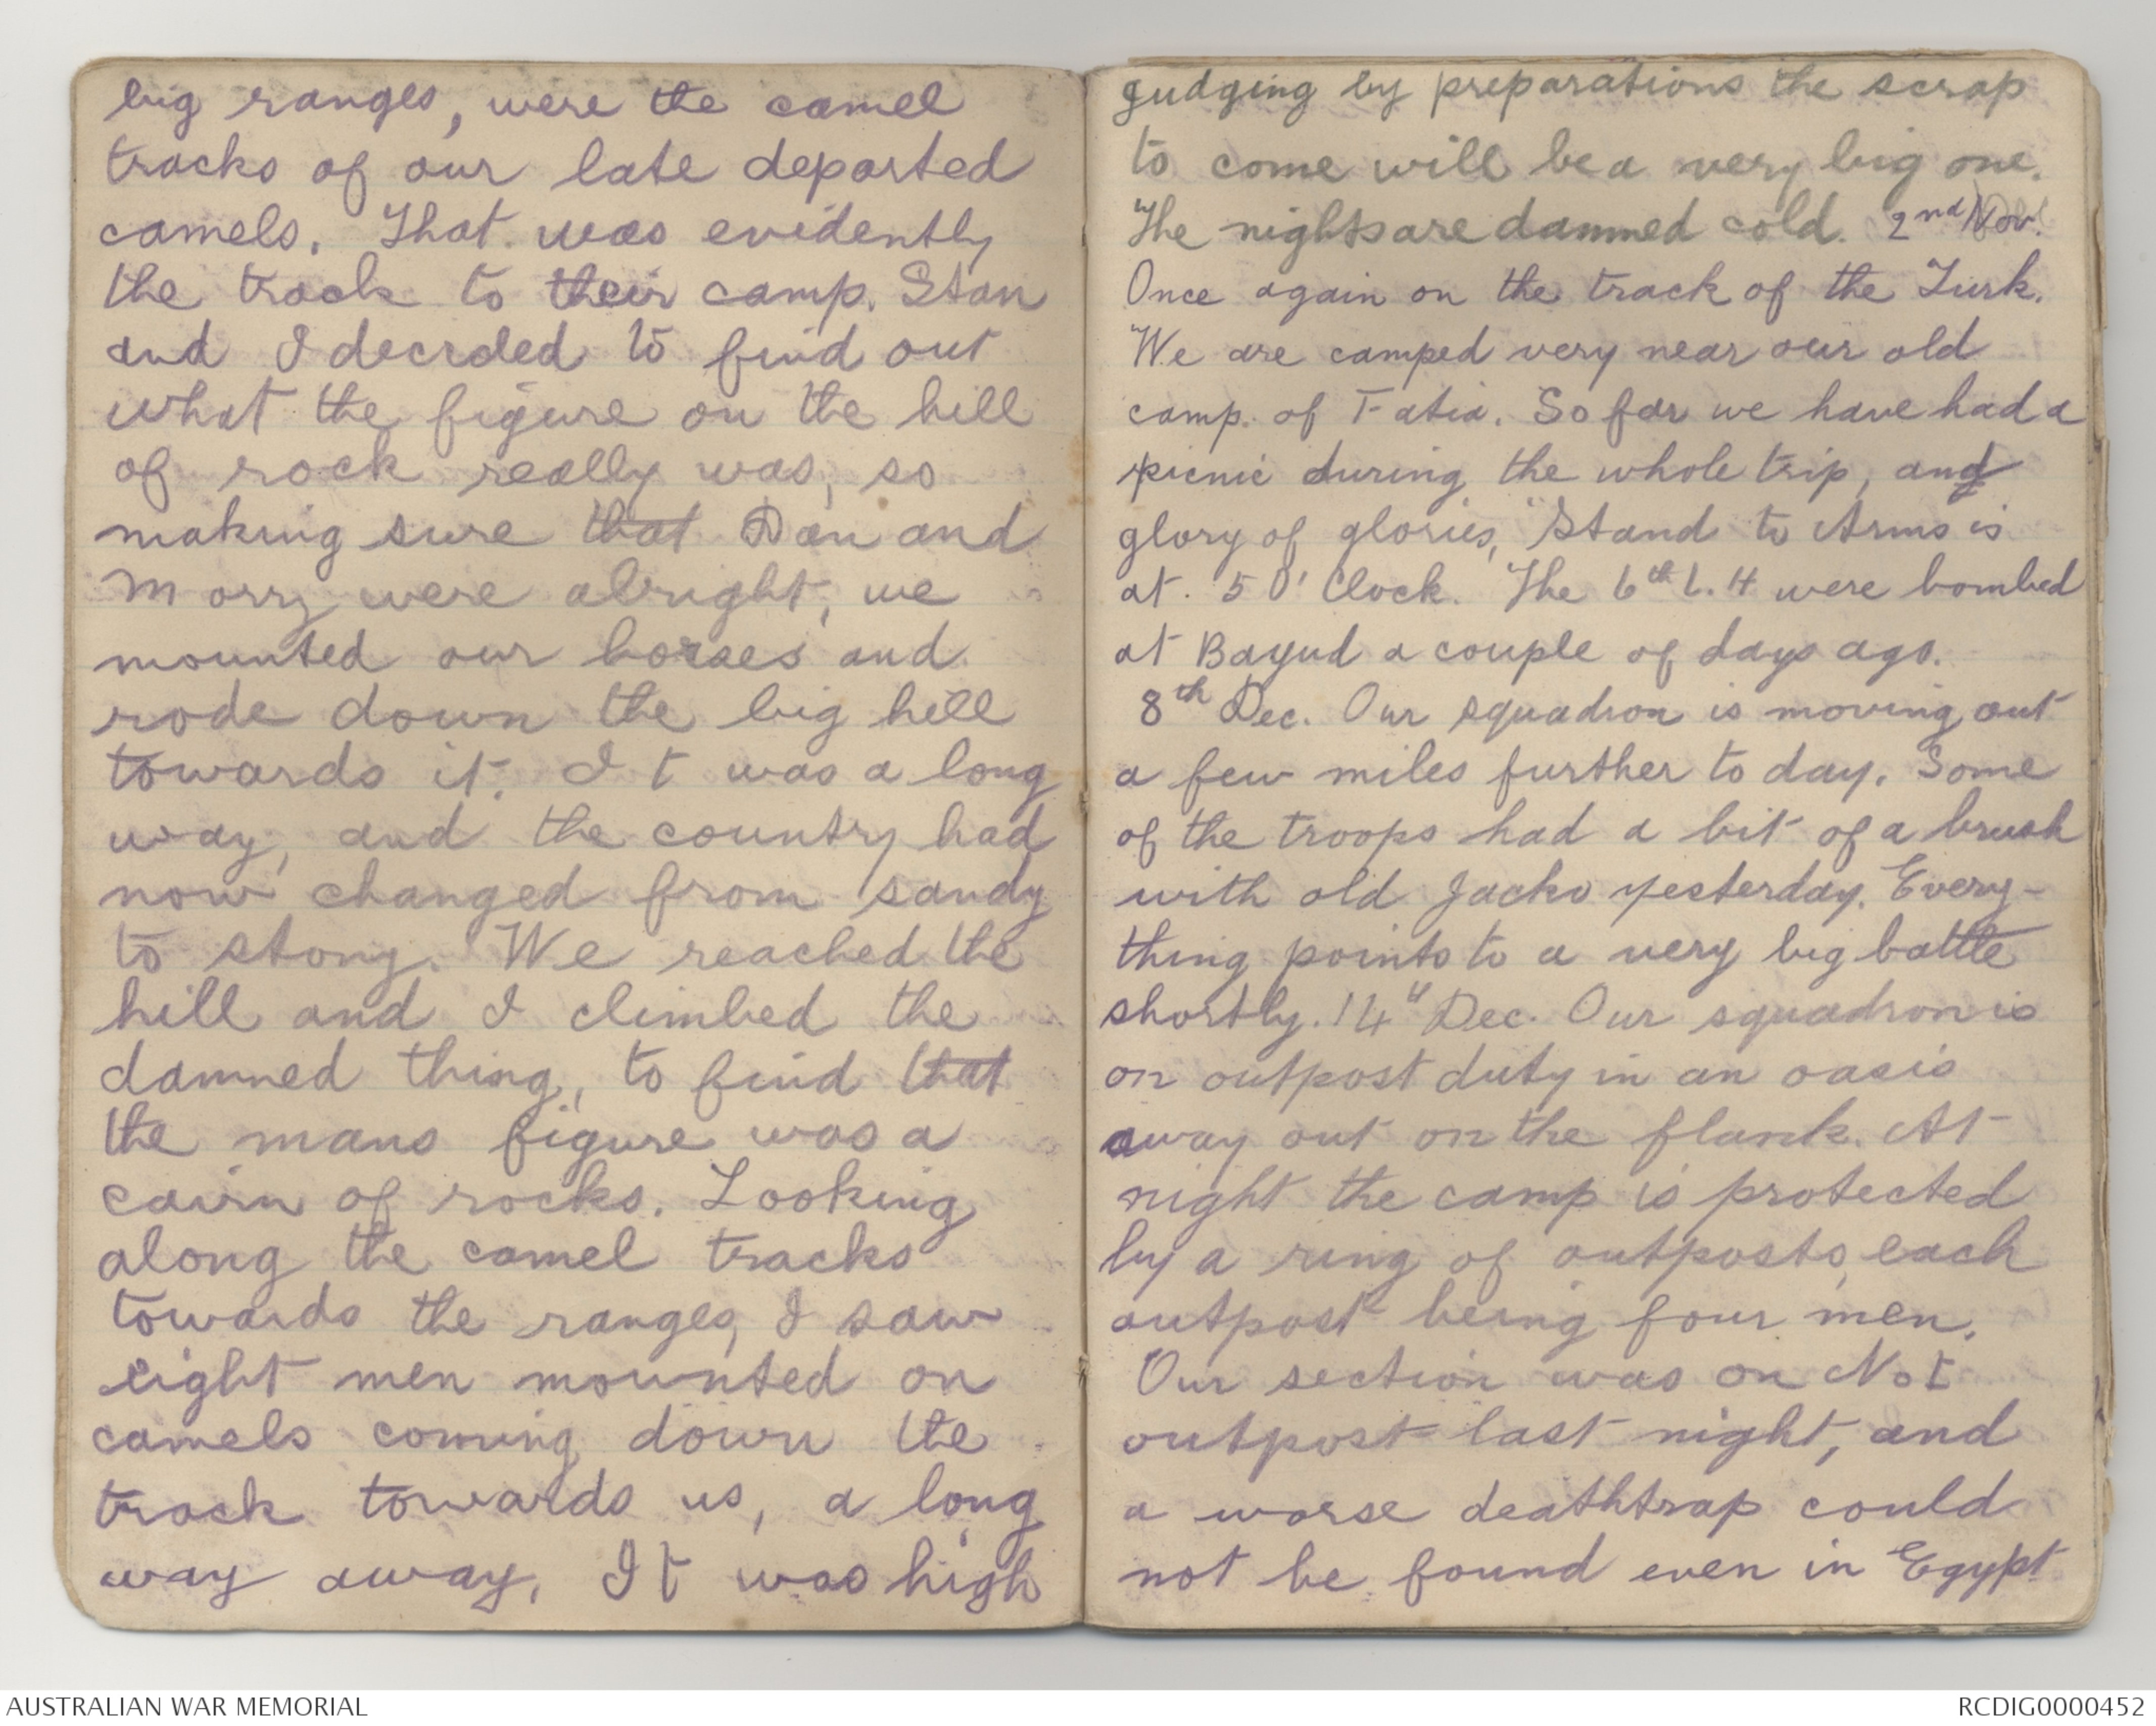 big ranges, were the camel
tracks of our late departed
camels. That was evidently
the track to their camp. Stan
and I decided to find out
what the figure on the hill
of rock really was, so
making sure that Dan and
Morry were alright, we
mounted our horses and
rode down the big hill
towards it. It was a long
way, and the country had
now changed from sandy
to stony. We reached the
hill and I climbed the
damned thing, to find that
the mans figure was a
cairn of rocks. Looking
along the camel tracks
towards the ranges, I saw
eight men mounted on
camels coming down the
track towards us, a long
way away. It was high
Judging by preparations the scrap
to come will be a very big one.
The nights are damned cold. 2nd Nov.
Once again on the track of the Turk.
We are camped very near our old
camp. of Fatia. So far we have had a
picnic during the whole trip, and
glory of glories, "Stand to Arms is
at. 5 O'Clock. The 6th L.H were bombed
at Bayud a couple of days ago.
8th Dec. Our squadron is moving out
a few miles further to day. Some
of the troops had a bit of a brush
with old Jacko yesterday. Every-
thing points to a very big battle
shortly. 14" Dec. Our squadron is
on outpost duty in an oasis
away out on the flank. At
night the camp is protected
by a ring of outposts, each
outpost being four men.
Our section was on No 1
outpost last night, and
a worse deathtrap could
not be found even in Egypt
AUSTRALIAN WAR MEMORIAL
RCDIG0000452